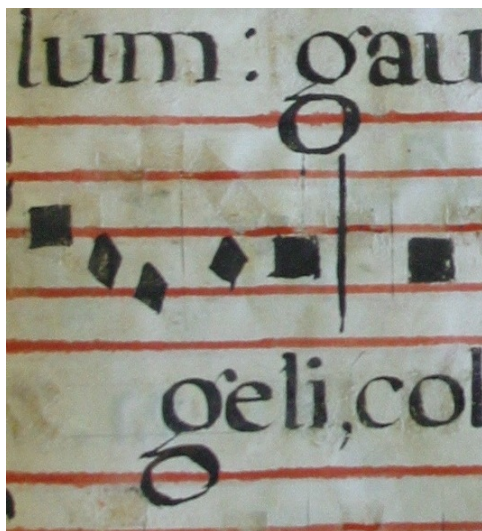 lum: gau
geli, col